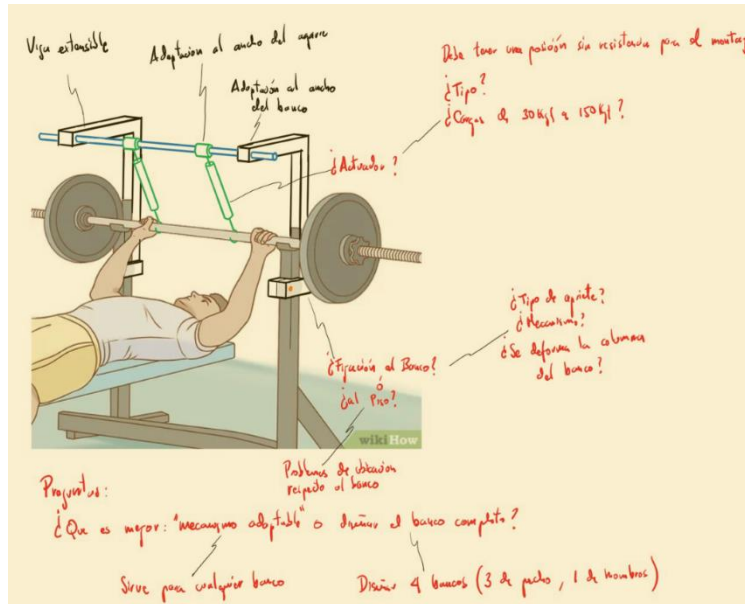 Viga extensible
Adaptación al ancho del agarre
Adaptación al ancho
del banco
Debe tener una posición sin resistencia para el montaj
¿Tipo?
¿Cargas de 30Kgf a 150Kgf?
¿Actuador?
¿Tipo de apriete?
¿Mecanismo?
¿Se deforma la columna
del banco?
¿Fijación al Banco?
ó
¿al Piso?
wikiHow
Problemas de ubicación
respecto al banco
Preguntas:
¿Que es mejor: "mecanismo adaptable" o diseñar el banco completo?
Sirve para cualquier banco
Diseñar 4 bancos (3 de pecho, 1 de hombros)